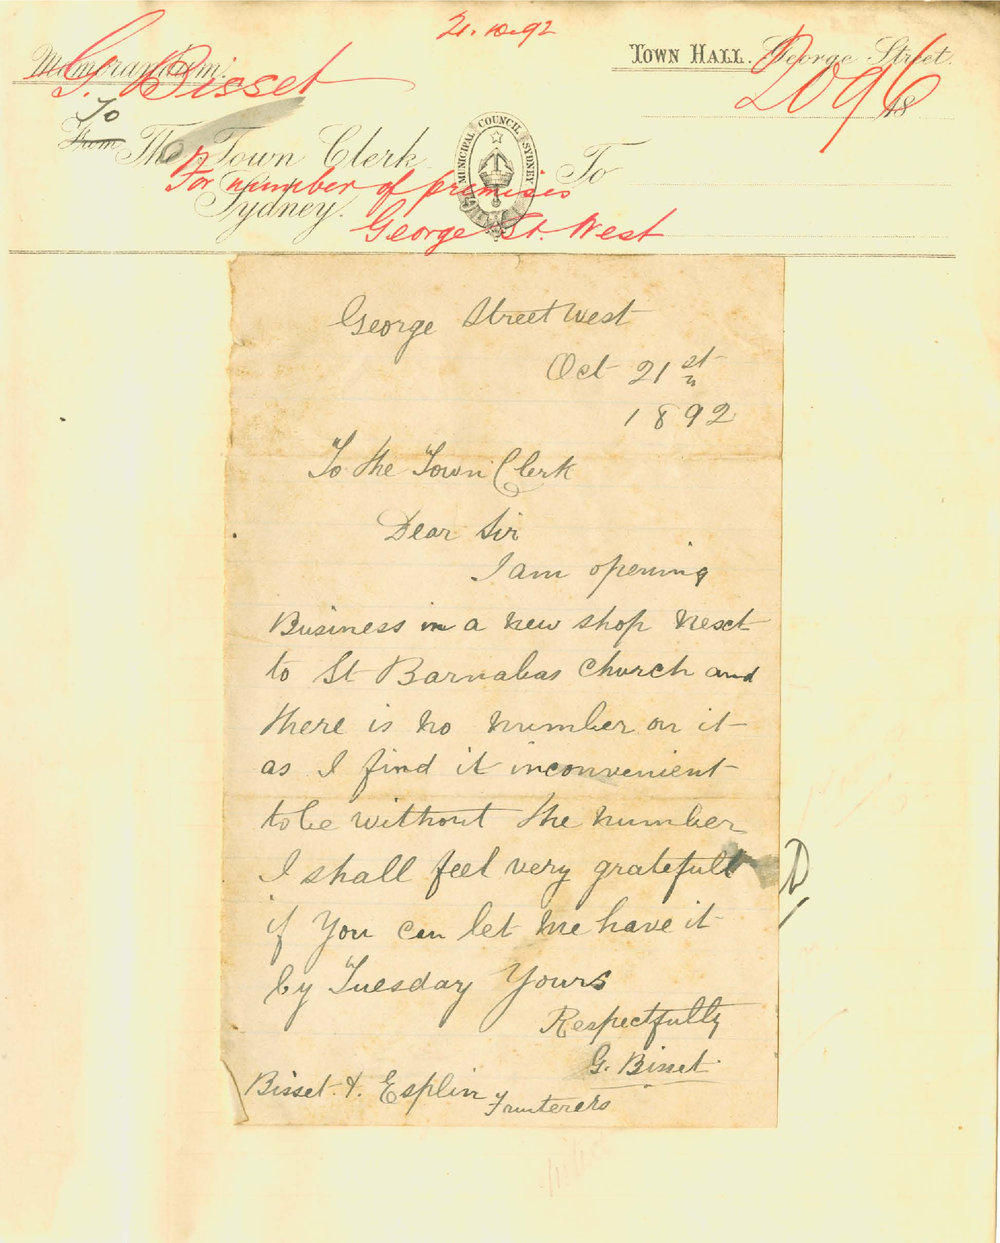 21.10.92
Memorandum. TOWN HALL. George Street.
G. Bisset
2096
18
To
From The Town Clerk To
MUNICIPAL COUNCIL SYDNEY
For number of premises
Sydney.
George St. West
George Street West
Oct 21st
1892
To the Town Clerk
Dear Sir
I am opening
Business in a new shop Next
to St Barnabas Church and
there is no number on it
as I find it inconvenient
to be without the number
I shall feel very gratefull
if You can let me have it
by Tuesday Yours
Respectfully
G. Bisset
Bisset & Esplin Fruiterers